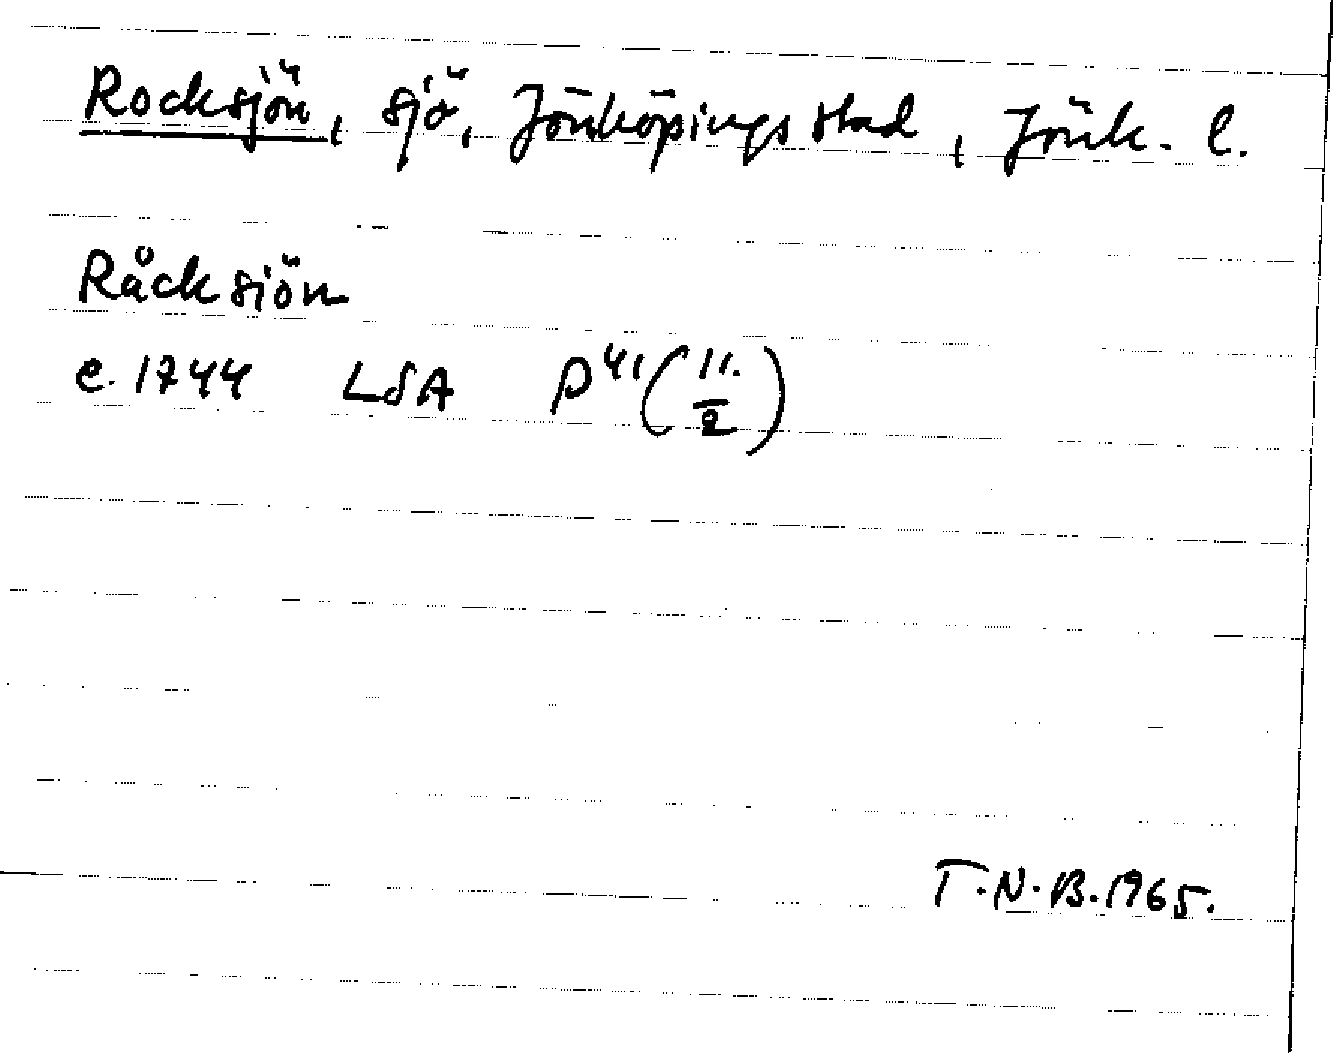 Rocksjön, sjö, Jönköpings stad, Jönk. l.
Råcksiön
e. 1744 LSA D41 (11./2)
T.N.B. 1965.